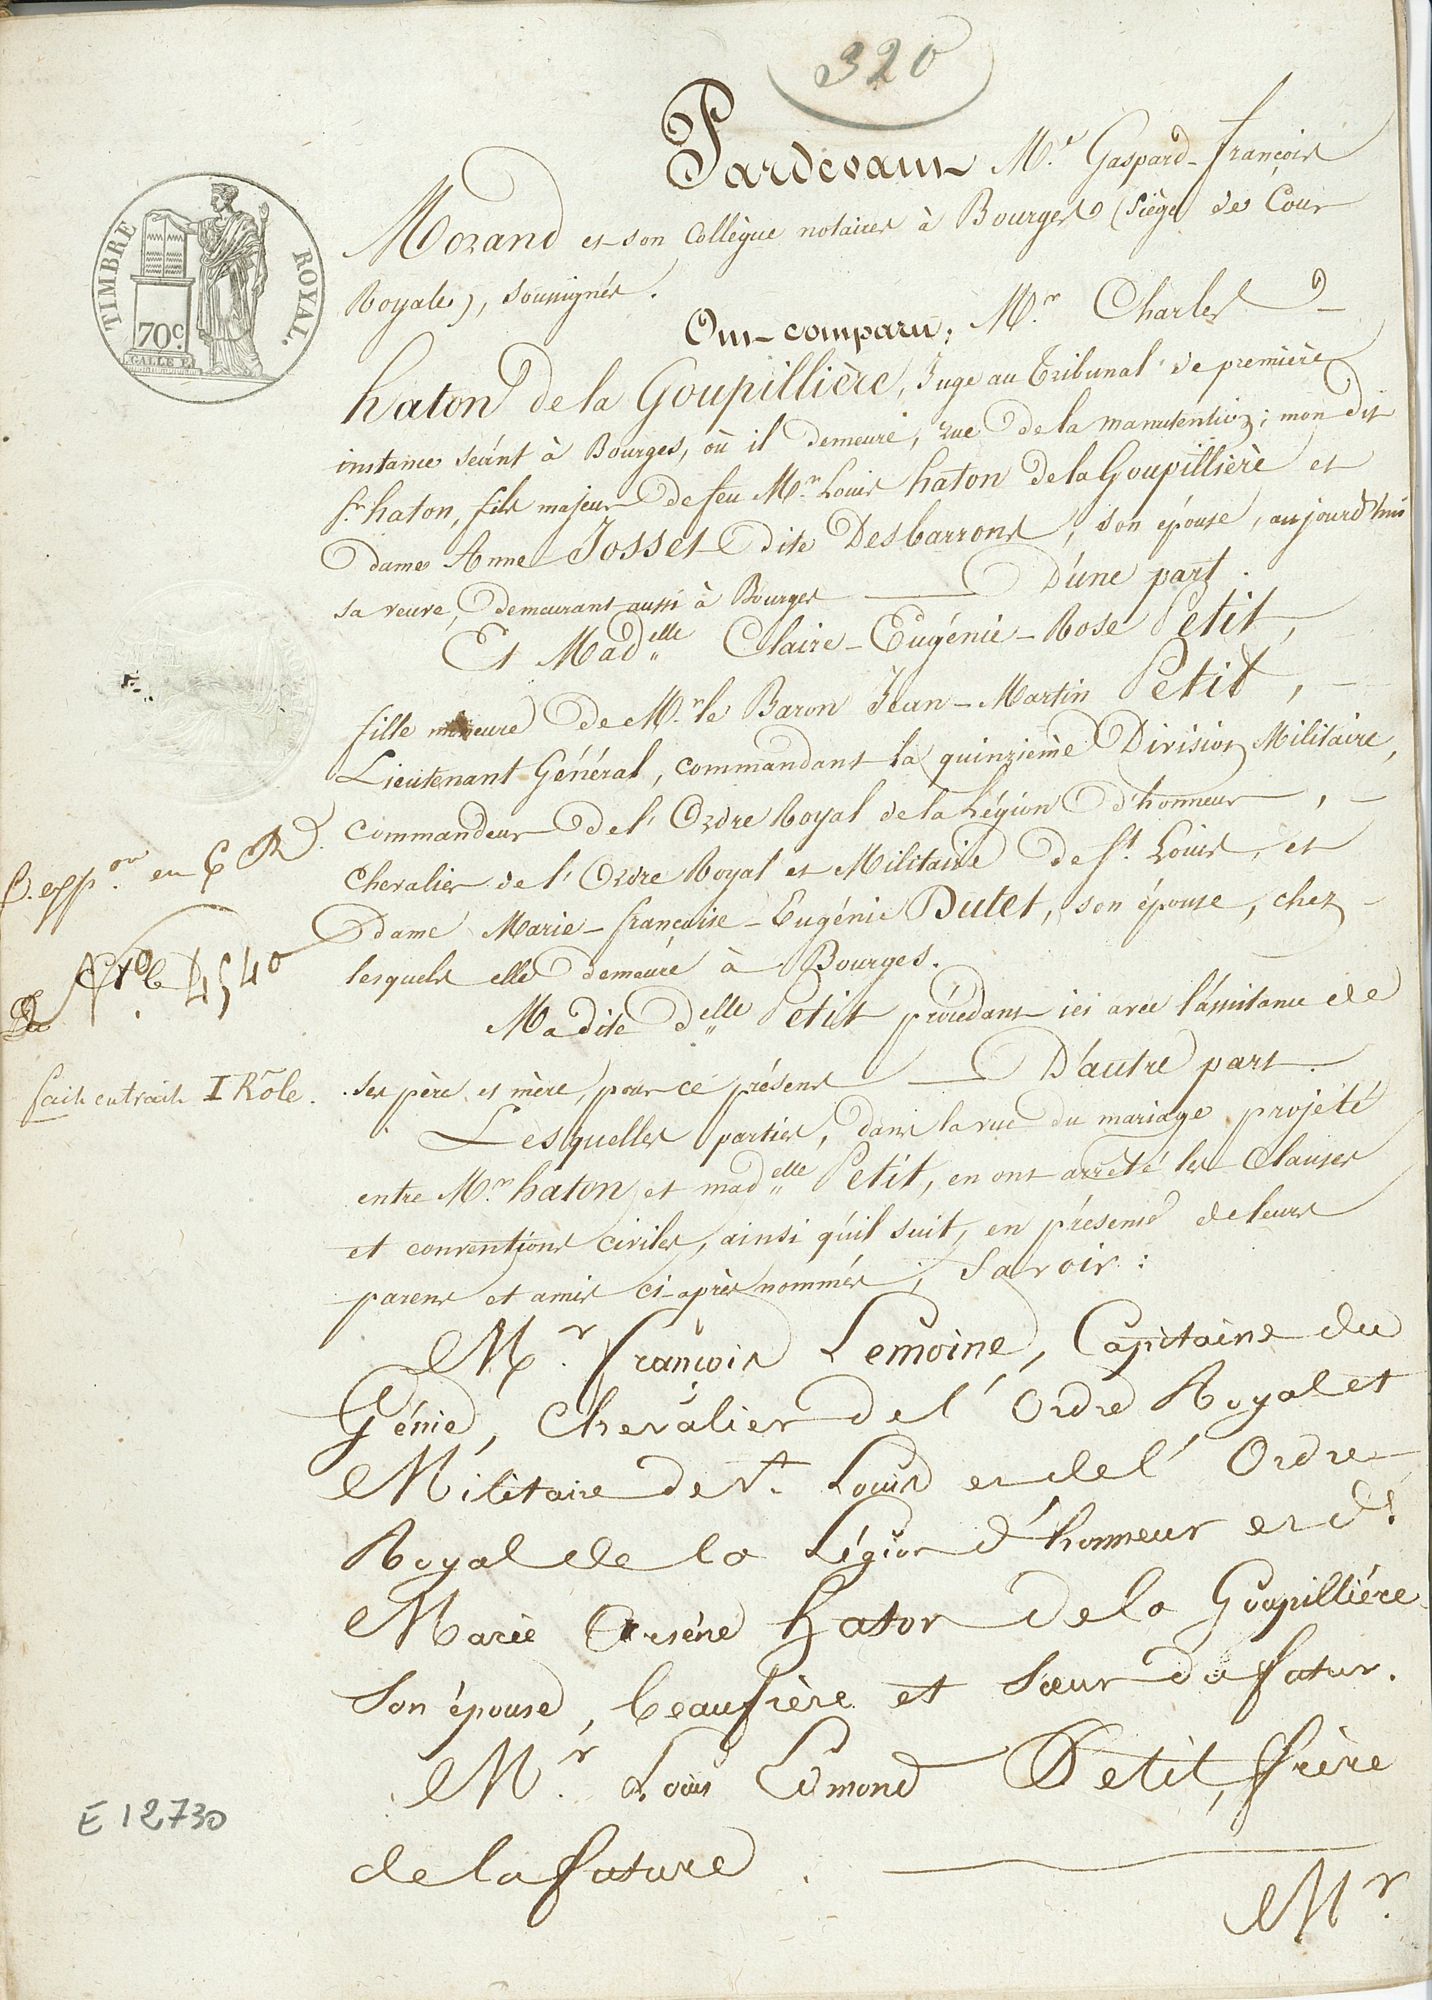 320
Pardevant M.e Gaspard-François
Morand et son Collègue notaires à Bourges (siège de Cour
Royale), soussignés.
TIMBRE ROYAL.
70c.
Ont comparu, M.r Charles
haton de la Goupillière, Juge au Tribunal de première
instance séant à Bourges, où il demeure, rue de la manutention; mon dit
Sr. haton, fils majeur de feu M.r Louis haton de la Goupillière et
dame Anne Josset dite Desbarrons, son épouse, aujourd'hui
sa veuve, demeurant aussi à Bourges D'une part.
Et Mad.elle Claire-Eugénie-Rose Petit,
fille mineure de M.r le Baron Jean-Martin Petit,
Lieutenant Général, commandant la quinzième Division Militaire,
commandeur de l'Ordre Royal de la Légion d'honneur,
Chevalier de l'Ordre Royal et Militaire de St. Louis, et
Dame Marie-françoise-Eugénie Dutet, son épouse, chez
lesquels elle demeure à Bourges.
Ma dite d.elle Petit procédant ici avec l'assistance de
ses père et mère, pour ce présens D'autre part.
4,540
fait extrait I Rôle.
Lesquelles parties, dans la vue du mariage projété
entre M.r haton et mad.elle Petit, en ont arrêté les Clauses
et conventions civiles, ainsi qu'il suit, en présence de leurs
parens et amis ci-après nommés, Savoir:
M.r François Lemoine, Capitaine du
Génie, Chevalier de l'Ordre Royal et
Militaire de St. Louis et de l'Ordre
Royal de la Légion d'honneur et de.
Marie Arsène haton de la Goupillière
son épouse, beaufrère et soeur du futur.
M.r Louis Edmond Petit, frère
de la future.
M.r
E 12730